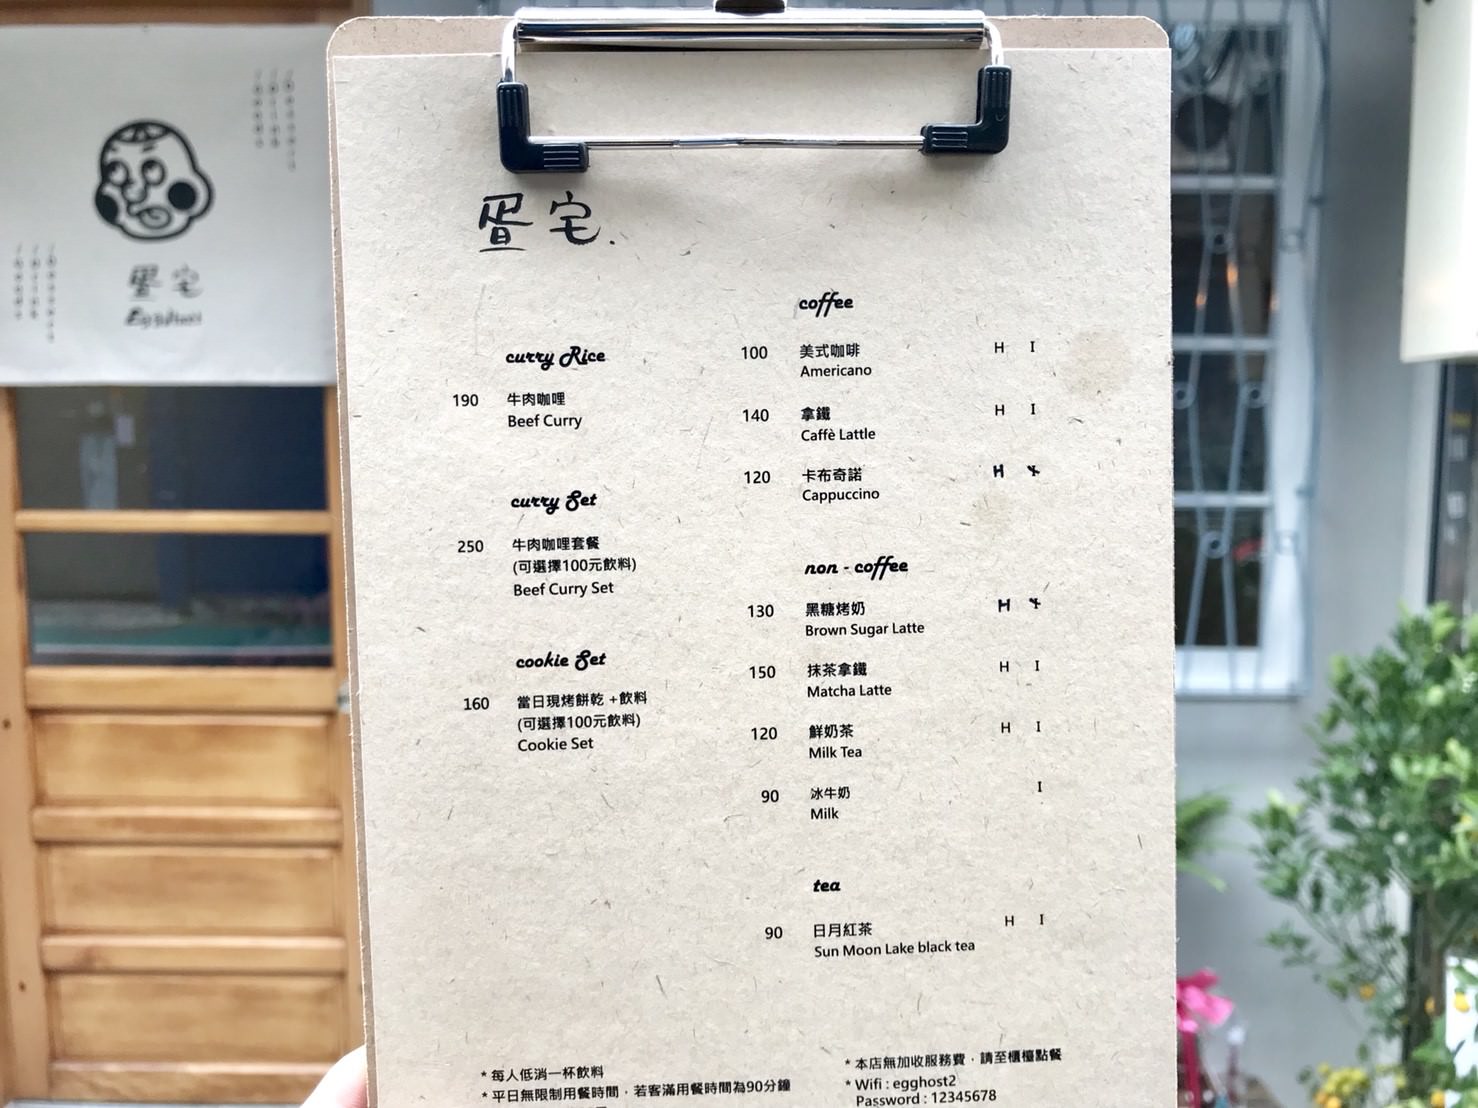 蛋宅.
curry Rice
190 牛肉咖哩
Beef Curry
curry Set
250 牛肉咖哩套餐
(可選擇100元飲料)
Beef Curry Set
cookie Set
160 當日現烤餅乾 +飲料
(可選擇100元飲料)
Cookie Set
coffee
100 美式咖啡 H I
Americano
140 拿鐵 H I
Caffè Lattle
120 卡布奇諾 H
Cappuccino
non - coffee
130 黑糖烤奶 H
Brown Sugar Latte
150 抹茶拿鐵 H I
Matcha Latte
120 鮮奶茶 H I
Milk Tea
90 冰牛奶 I
Milk
tea
90 日月紅茶 H I
Sun Moon Lake black tea
* 每人低消一杯飲料
* 平日無限制用餐時間，若客滿用餐時間為90分鐘
* 本店無加收服務費，請至櫃檯點餐
* Wifi : egghost2
Password : 12345678
蛋宅